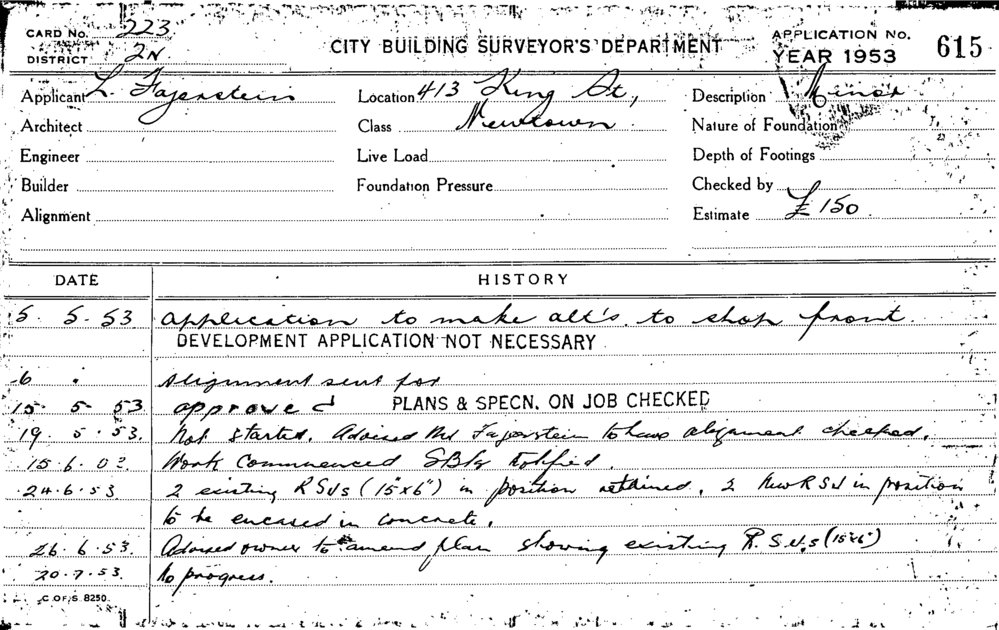 CARD No. 223
DISTRICT 2N
CITY BUILDING SURVEYOR'S DEPARTMENT
APPLICATION No.
YEAR 1953
615
Applicant L. Fajerstein
Location 413 King St,
Description Minor
Architect
Class Newtown
Nature of Foundation
Engineer
Live Load
Depth of Footings
Builder
Foundation Pressure
Checked by
Alignment
Estimate £150
DATE HISTORY
5. 5. 53 Application to make alt's. to shop front
DEVELOPMENT APPLICATION NOT NECESSARY
6 . Alignment sent for
15 5 53 approved PLANS & SPECN. ON JOB CHECKED
19. 5. 53. Not started. Advised Mr Fajerstein to have alignment checked.
15. 6. Work Commenced notified.
24. 6. 53 2 existing R SJs (15"x6") in position retained. 2 New R SJ in position
to be encased in concrete.
26. 6. 53. Advised owner to amend plan showing existing R.S.J.s (15"x6")
20. 7. 53. No progress.
C. OF S. 8250.